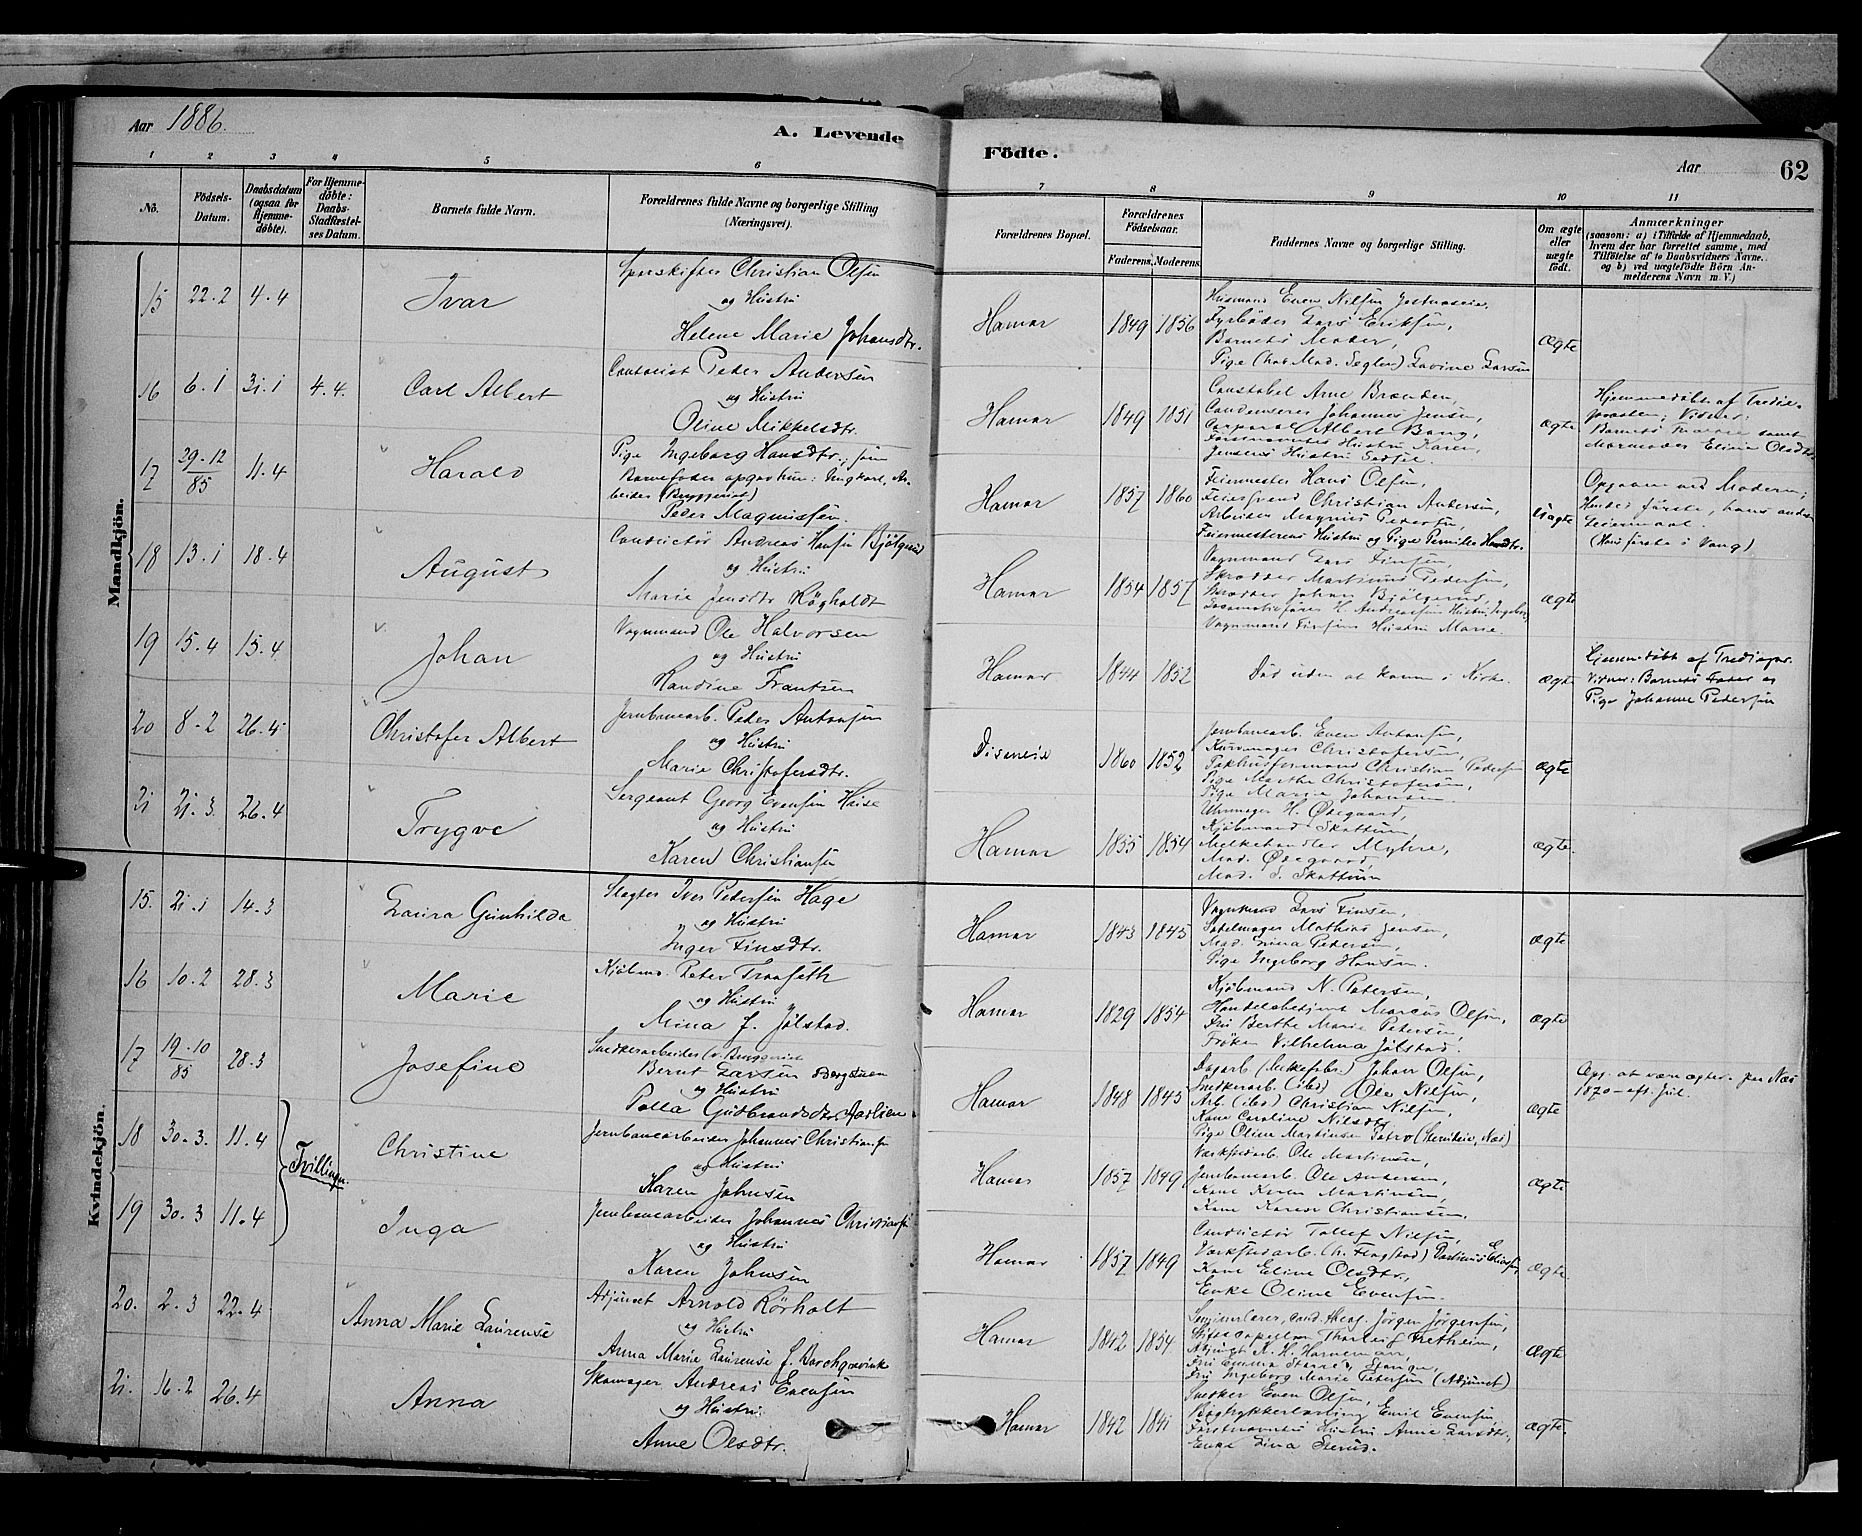 Aar 1886.
A. Levende
Födte.
Aar
62
1 2 3 4 5 6 7 8 9 10 11
Nö.
Födsels-Datum.
Daabsdatum (ogsaa for Hjemme-döbte).
For Hjemme-döbte: Daabs-Stadfæstel-ses Datum.
Barnets fulde Navn.
Forældrenes fulde Navne og borgerlige Stilling (Næringsvei).
Forældrenes Bopæl.
Forældrenes Födselsaar.
Faderens. Moderens.
Faddernes Navne og borgerlige Stilling.
Om ægte eller uægte födt.
Anmærkninger
(saasom: a) i Tilfælde af Hjemmedaab, hvem der har forrettet samme, med Tilföielse af to Daabsvidners Navne, og b) ved uægtefödte Börn An-melderens Navn m. V.)
Mandkjön.
15 22.2 4.4 Ivar
Sporskifter Christian Olsen
og Hustru
Helene Marie Johansdtr.
Hamar 1849 1856
Husmand Even Nilsen
Fyrböder Lars Eriksen,
Barnets Moder,
Pige Lovine Larsen
Ægte
16 6.1 31.1 4.4. Carl Albert
Peder Andersen
og Hustru
Oline Mikkelsdtr.
Hamar 1849 1851
Constabel Arne Brænden,
Condenserer Johannes Jensen,
Corporal Albert Bang,
Förstnævntes Hustru Karen,
Jensens Hustru
Ægte
Hjemmedöbt af
Vidner:
Barnets samt
Eline Olsdtr.
17 29.12/85 11.4 Harald
Pige Ingeborg Hansdtr., som
Barnefader opgav hun: Ungkarl, Ar-
beider (Bryggeriet)
Peder Magnussen.
Hamar 1857 1860
Feiermester Hans Olsen,
Feiersvend Christian Andersen,
Arbeider Magnus Pedersen,
Feiermesterens Hustru og Pige Pernille Hansdtr.
Uægte
Opgaven ved Moderen;
Hendes første, hans andet
Leiermaal.
(Hans første i Vang)
18 13.1 18.4 August
Conductör Andreas Hansen Bjölgerud
og Hustru
Marie Jensdtr Rögholdt
Hamar 1854 1857
Vognmand Lars Finsen,
Skrædder Martinus Pedersen,
Skrædder Johan Bjölgerud,
Locomotivförer H. Andreassens Hustru Ingeborg,
Vognmand Finsens Hustru Marie.
Ægte
19 15.4 15.4 Johan
Vognmand Ole Halvorsen
og Hustru
Randine Frantsen
Hamar 1844 1852
Död uden at komme i Kirke.
Ægte
Hjemmedöbt af
Vidner: Barnets Fader og
Pige Johanne Pedersen
20 8.2 26.4 Christofer Albert
Jernbanearb. Peder Antonsen
og Hustru
Marie Christofersdtr.
Diseneie 1860 1852
Jernbanearb. Even Antonsen,
Kurvmager Christofersen,
Pakhusformand Christian Pedersen
Pige Marthe Christofersen,
Pige Marie Johansen.
Ægte
21 21.3. 26.4 Trygve
Sergeant Georg Evensen Heise
og Hustru
Karen Christiansen
Hamar 1855 1854
Uhrmager H. Ödegaard,
Kjöbmand Skattum,
Melkehandler Myhre,
Mad. Ödegaard,
Mad. S. Skattum
Ægte.
Kvindekjön.
15. 21.1 14.3 Laura Gunhilda
Slagter Iver Petersen Hage
og Hustru
Inger Finsdtr.
Hamar 1843 1845
Vognmand Lars Finsen,
Sadelmager Mathias Jensen,
Mad. Lina Petersen,
Pige Ingeborg Hansen.
Ægte
16 10.2 28.3 Marie
Kjöbm. Peter Traaseth
og Hustru
Mina f. Jölstad.
Hamar 1829 1854
Kjöbmand N. Petersen,
Handelsbetjent Marcus Olsen,
Fru Berthe Marie Petersen,
Fröken Vilhelma Jölstad.
Ægte
17 19.10/85 28.3 Josefine
Snedkerarbeider
Bernt Larsen Bergstuen
og Hustru
Polla Gudbrandsdtr
Hamar 1848 1845
Dagarb. Johan Olsen,
Snedkerarb. (ibd) Ole Nilsen,
Arb. (ibd) Christian Nilsen,
Kone Caroline Nilsdtr,
Pige Oline Martinsen
Ægte
Opg. at være ægtev. paa Næs
1870
18 30.3. 11.4 Tvillinger. Christine
Jernbanearbeider Johannes Christiansen
og Hustru
Karen Johnsen
Hamar 1857 1849
Værkstedarb. Ole Martinsen,
Jernbanearb. Ole Andersen,
Kone Karen Martinsen,
Kone Karen Christiansen,
Ægte
19 30.3 11.4 Inga
Jernbanearbeider Johannes Christiansen
og Hustru
Karen Johnsen
Hamar 1857 1849
Conductör Tollef Nilsen,
Værkstedarb.
Kone Eline Olsdtr.,
Enke Oline Evensen.
Ægte.
20. 2.3 22.4 Anna Marie Laurense
Adjunct Arnold Rörholt
og Hustru
Anna Marie Laurense f. Borchgrevink
Hamar 1842 1854
cand. theol. Jörgen Jörgensen,
Stiftscapellan Thorleif Fretheim,
Adjunct K. H. Hanneman,
Fru Emma
Fru Ingeborg Marie Petersen (Adjunct)
Ægte
21. 16.2 26.4 Anna
Skomager Andreas Evensen
og Hustru
Anne Olsdtr.
Hamar 1842 1841
Snedker Even Olsen,
Bogtrykkerlærling Emil Evensen,
Förstnævntes Hustru Anne Larsdtr.,
Enke Lina
Ægte.